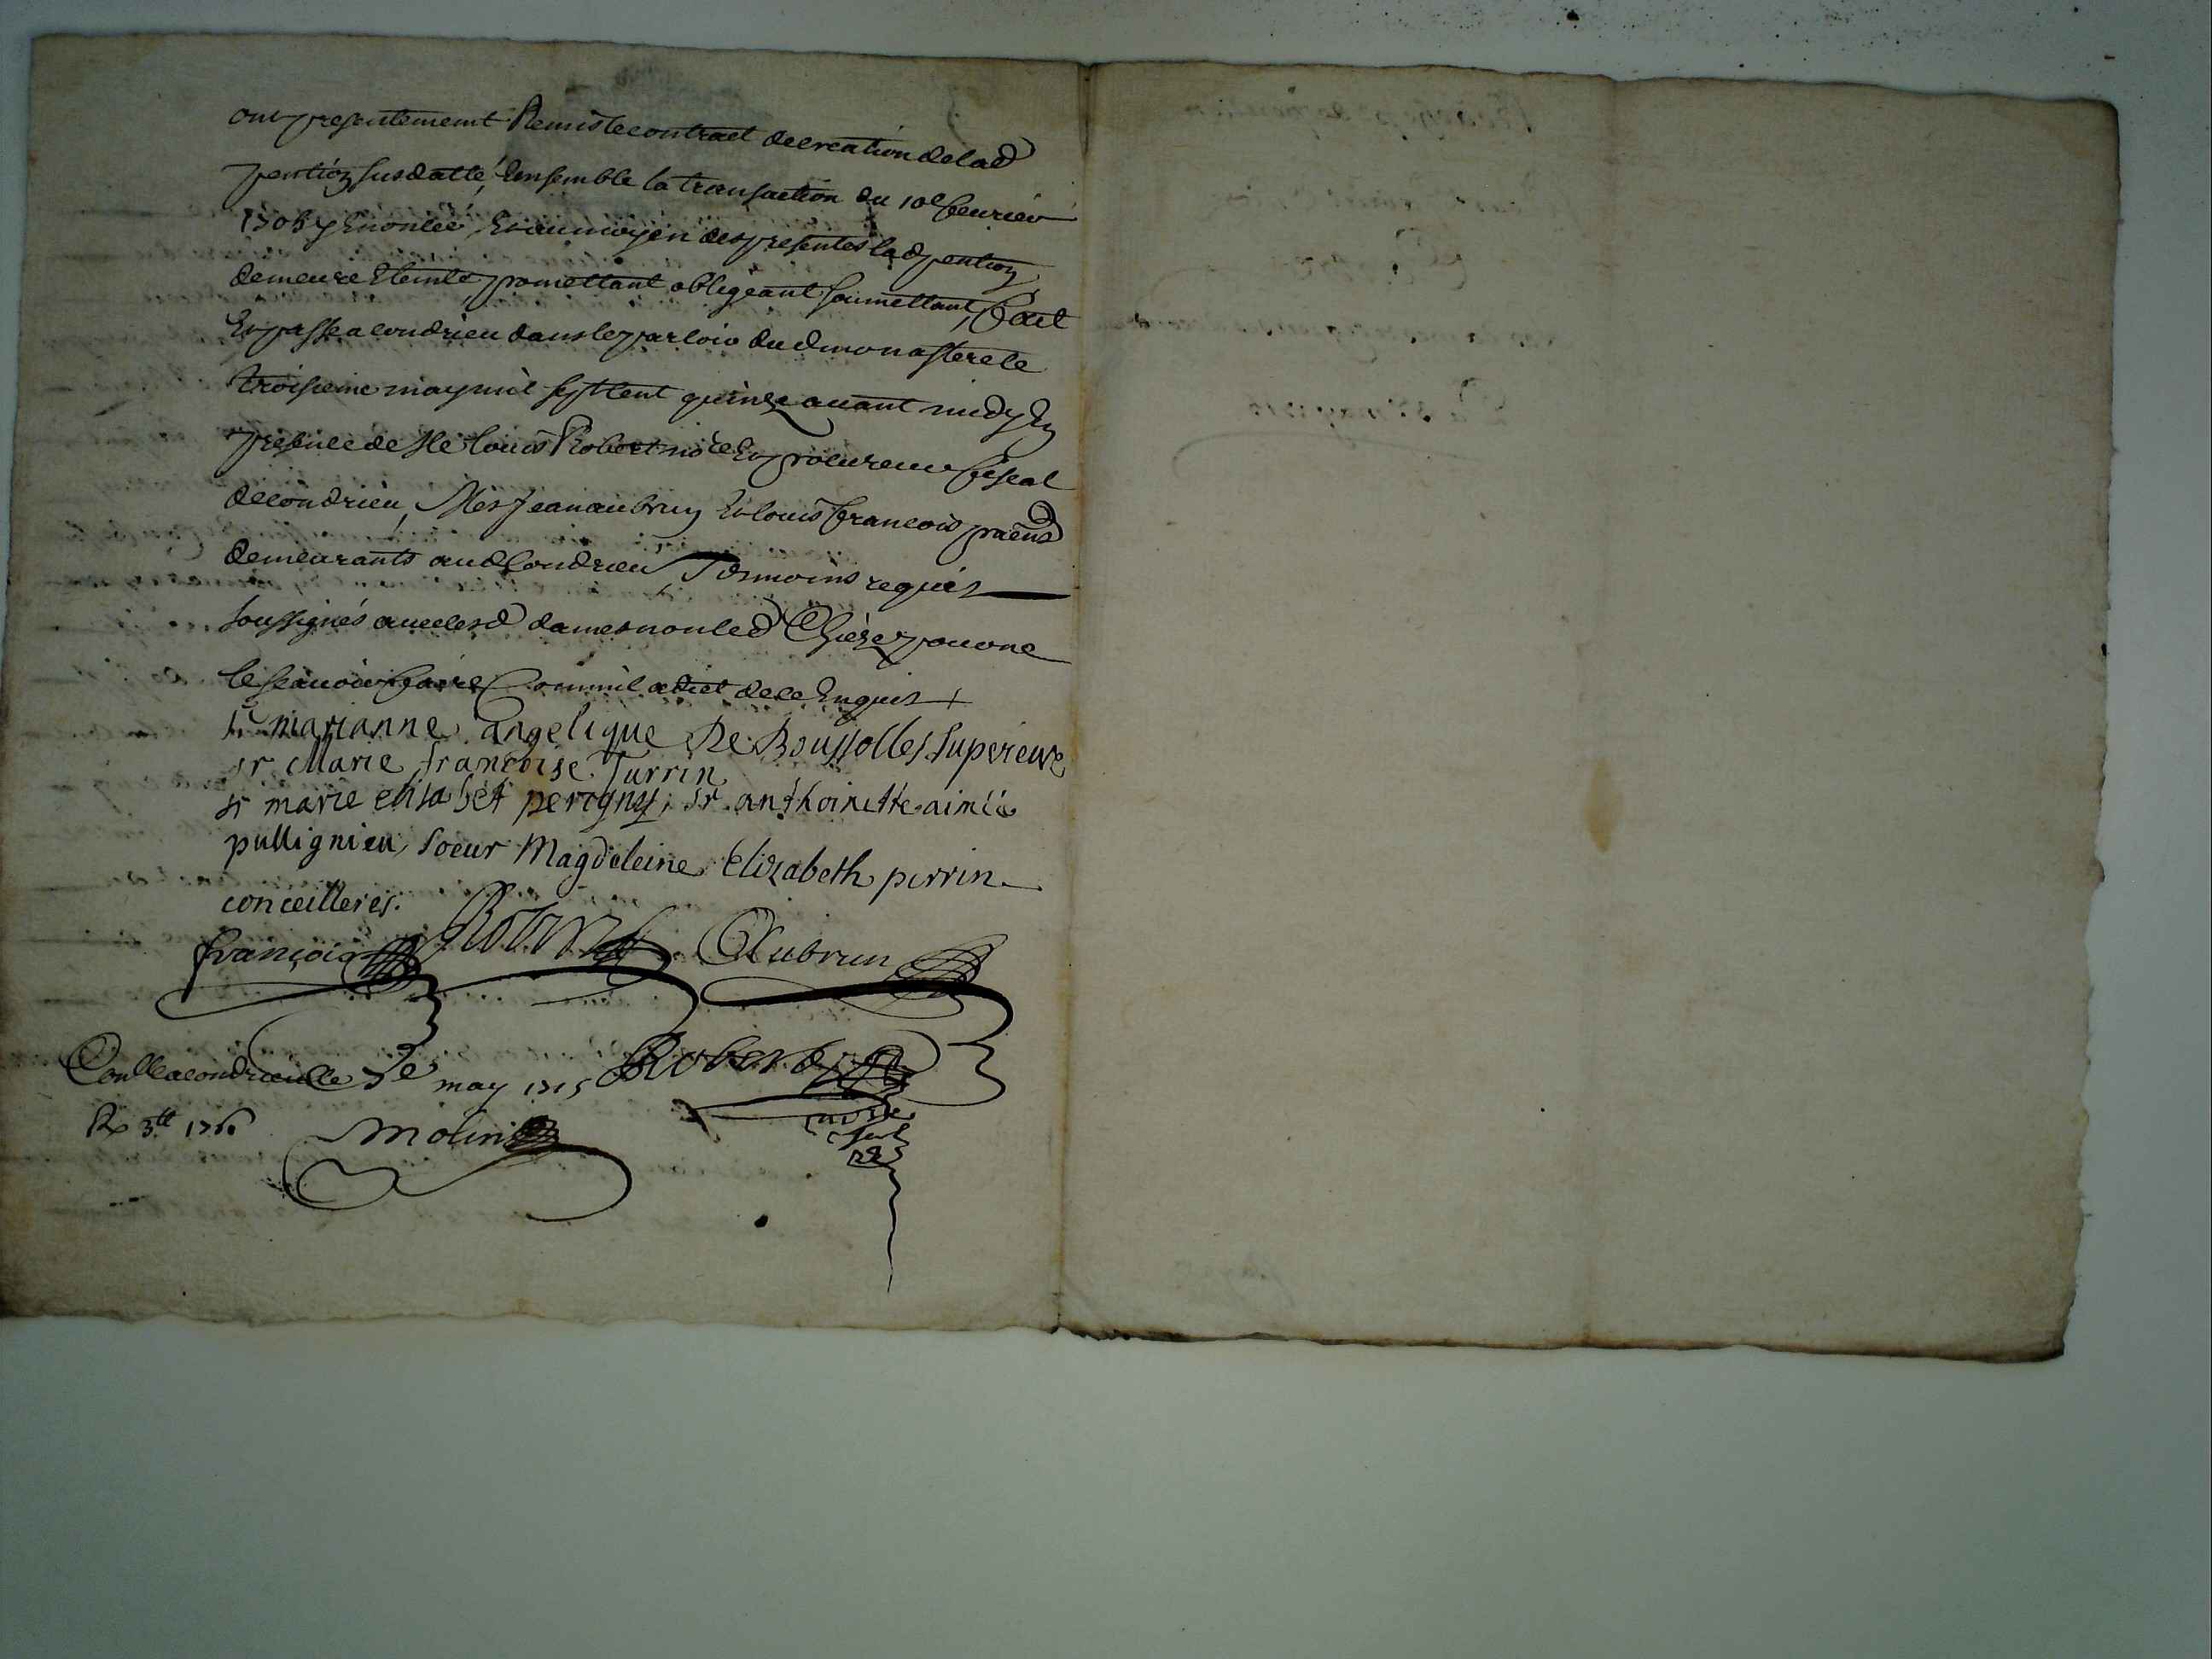 ont presentement Remis le contract de creation de lad
pention susdatté, Ensemble la transaction du 10e feurier
1705 y Enoncée, Et au moyen des presentes lad pention
demeure Eteinte promettant obligeant soumettant, fait
Et passé a condrieu dans le parloir dud monastere le
troisieme may mil sept cent quinze auant midy En
presence de Me Louis Robert nore Et procureur fiscal
de condrieu, Mes Jean aubrun Et louis francois praens
demeurants aud Condrieu, Temoins requis
soussignés auec lesd dames non led pour ne
le scauoir faire Comm'il a dict de ce Enquis +
sr marianne angelique De Boussolles superieure
sr Marie francoise Turrin
sr marie elisabet perigny, sr anthoinette aimée
pullignieu, soeur Magdeleine Elizabeth perrin
conceilleres.
françois Robert Aubrun
Conlle a condrieu le 3e may 1715 Robert
R 3tt
nore
molin